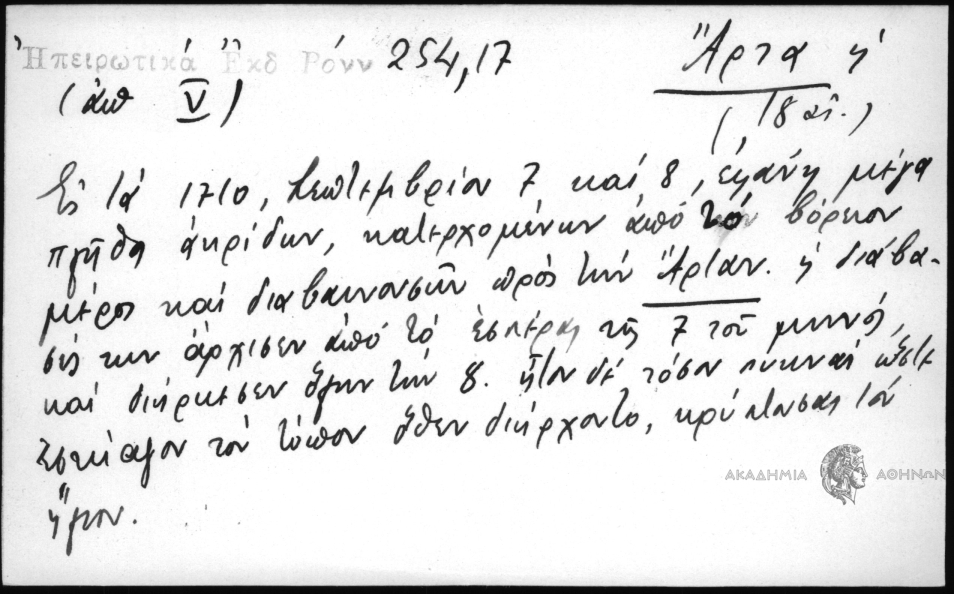 Ἠπειρωτικά Ἐκδ Ρόνν 254,17
Ἄρτα ἡ
(ἀπ V)
(18 αἰ.)
Εἰς τά 1710, Σεπτεμβρίου 7 καί 8, ἐφάνη μέγα
πλῆθος ἀκρίδων, κατερχομένων ἀπό τό βόρειον
μέρος καί διαβαινουσῶν πρός τήν Ἄρταν. ἡ διάβα-
σίς των ἄρχισεν ἀπό τό ἑσπέρας τῆς 7 τοῦ μηνός,
καί διήρκεσεν ὅλην τήν 8. ἦσαν δέ τόσον πυκναί ὥστε
ἐσκίαζον τόν τόπον ὅθεν διήρχοντο, κρύπτουσαι τόν
ἥλιον.
ΑΚΑΔΗΜΙΑ ΑΘΗΝΩΝ